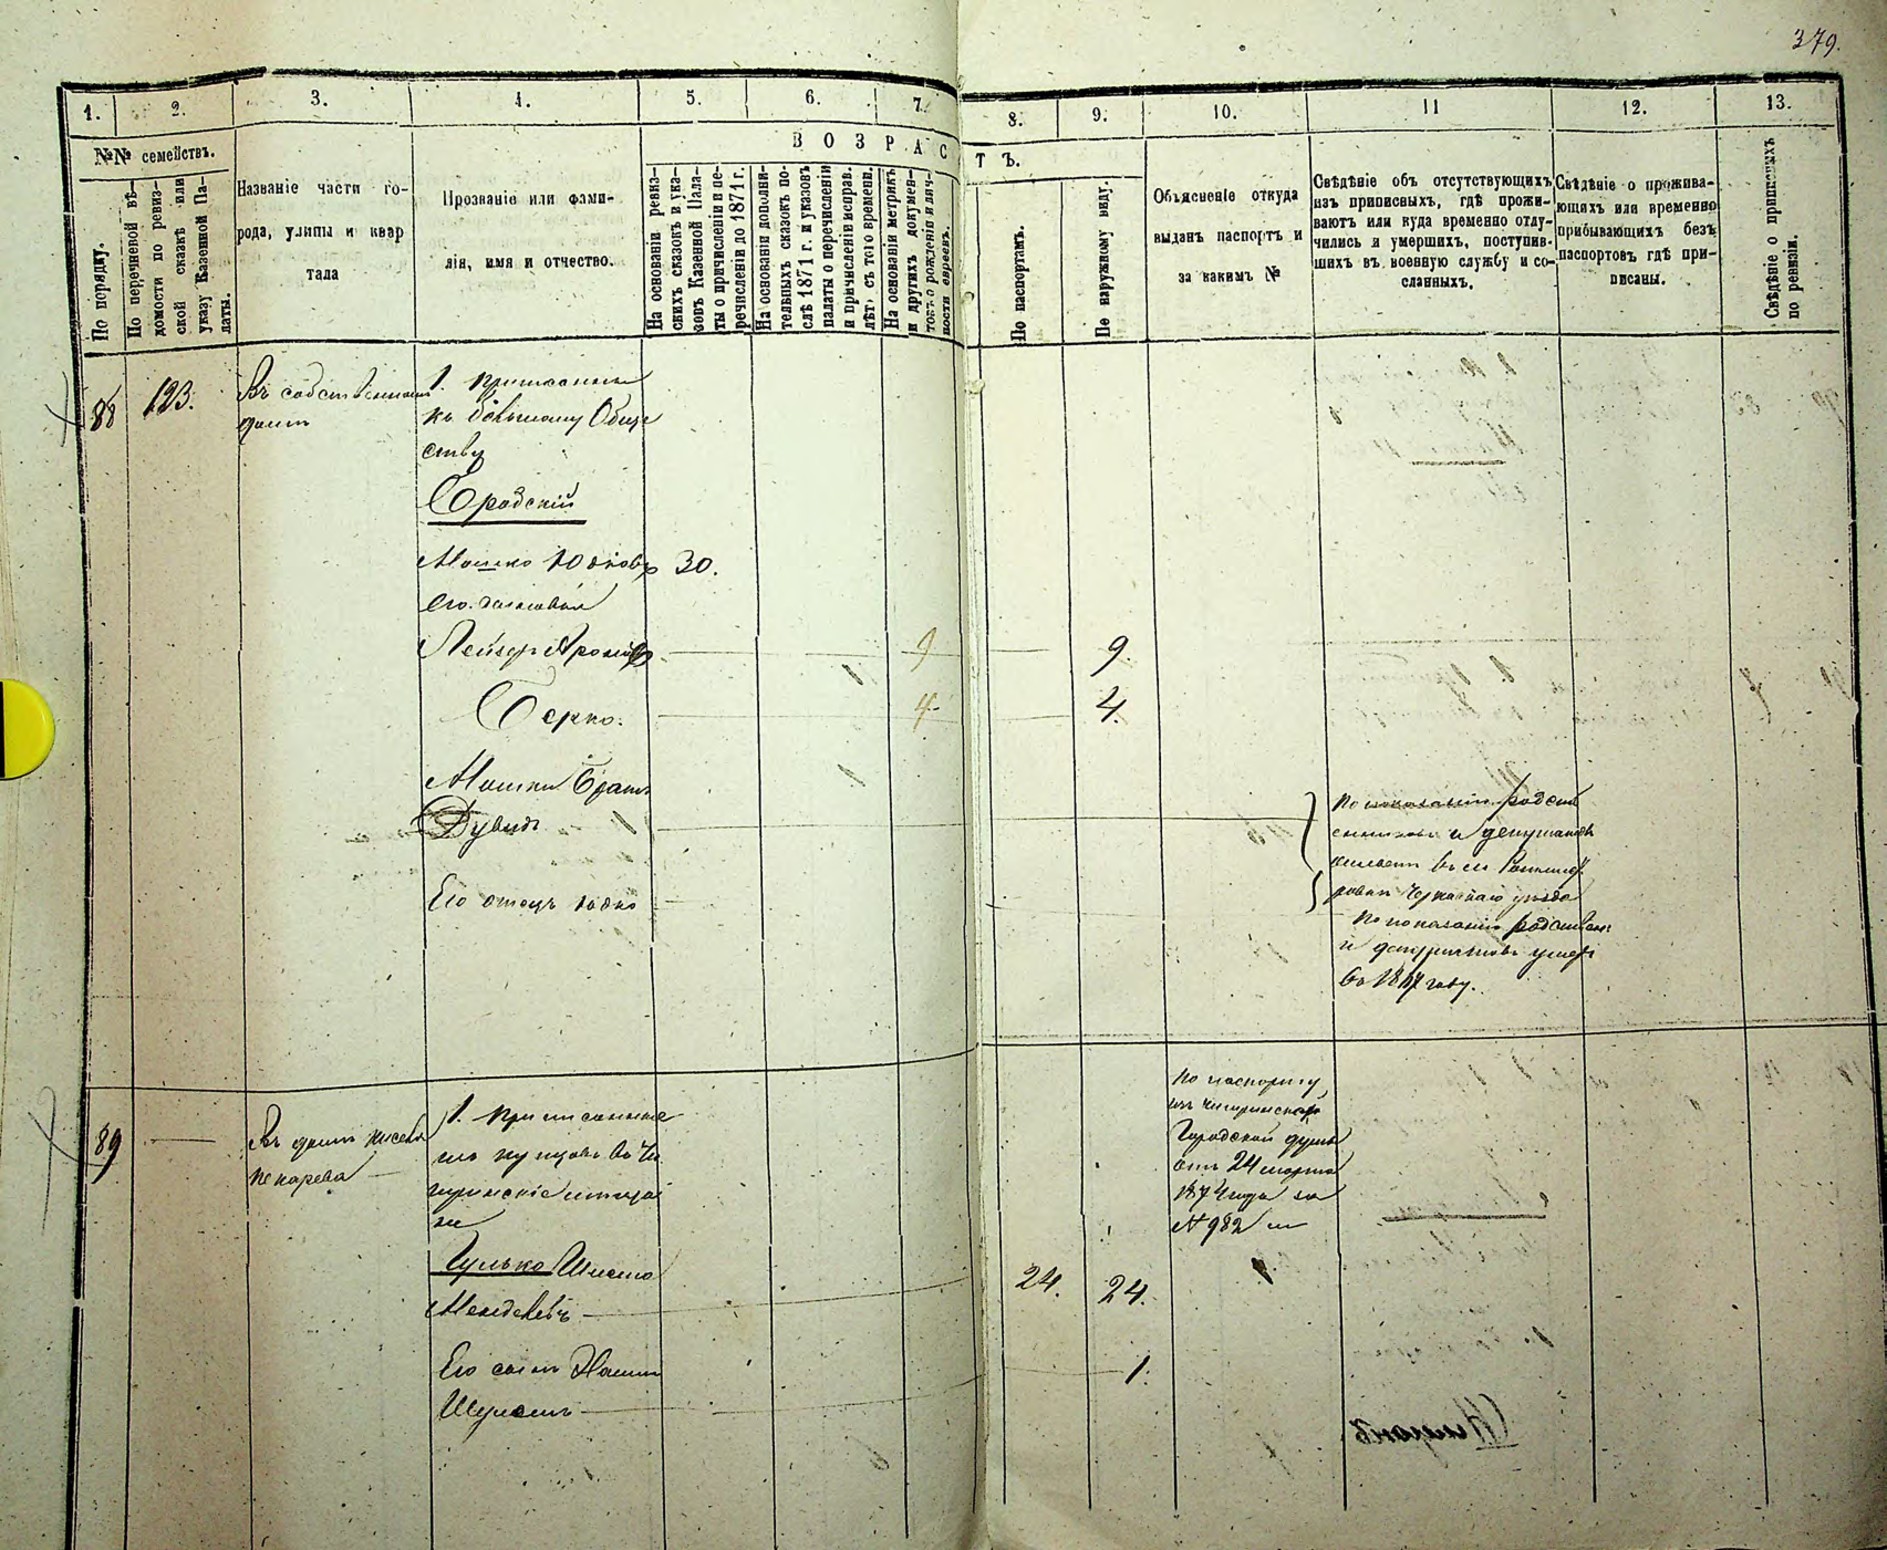 379.
1. 2. 3. 4. 5. 6. 7. 8. 9. 10. 11 12. 13.
№№ семействъ.
По порядку.
По перечневой вѣ-
домости по ревиз-
ской сказкѣ или
указу Казенной Па-
латы.
Названіе части го-
рода, улицы и квар
тала
Прозваніе или фами-
лія, имя и отчество.
ВОЗРАСТЪ.
На основаніи ревиз-
скихъ сказокъ и ука-
зовъ Казенной Пала-
ты о причисленіи и пе-
речисленіи до 1871 г.
На основаніи дополни-
тельныхъ сказокъ по-
слѣ 1871 г. и указовъ
палаты о перечисленіи
и причисленіи исправ.
лѣтъ съ того времени.
На основаніи метрикъ
и другихъ докумен-
товъ о рожденіи и лич-
ности евреевъ.
По паспортамъ.
По наружному виду.
Объясненіе откуда
выданъ паспортъ и
за какимъ №
Свѣдѣніе объ отсутствующихъ
изъ приписныхъ, гдѣ прожи-
ваютъ или куда временно отлу-
чились и умершихъ, поступив-
шихъ въ военную службу и со-
сланныхъ.
Свѣдѣніе о прожива-
ющихъ или временно
прибывающихъ безъ
паспортовъ гдѣ при-
писаны.
Свѣдѣніе о приписныхъ
по ревизіи.
88 123. Въ собственномъ
домѣ
1. Приписанные
къ Обще
ству
Бродскій
Мошко Юдковъ 30.
Его сыновья
Лейзеръ Ароновъ 9 9.
Берко. 4 4.
Мошки братъ
Дувидъ
По показанію родст
венниковъ и депутатовъ
Черкаскаго уѣзда
Его отецъ Юдко
По показанію родствен:
и депутатовъ умеръ
въ году.
89 Въ домѣ
1. Приписанные
изъ купцовъ въ Чи
гиринскіе мѣща
не
Гулько
Менделевъ 24. 24.
По паспорту
изъ Чигиринской
Городской думы
отъ 24 марта
1874 года за
№ 982 м
Его сынъ 1.